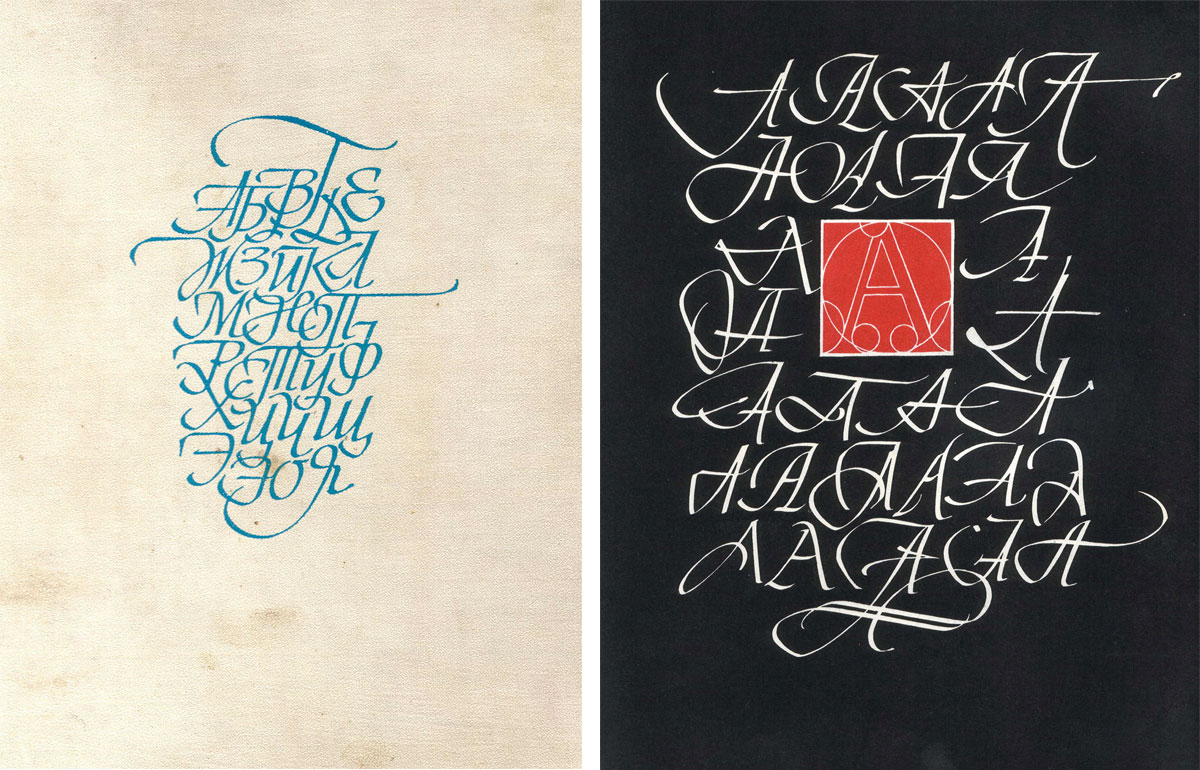 АБВГДЕ
ЖЗИКЛ
МНОП
РСТУФ
ХЦЧЩ
ЭЮЯ
ААААА
АААА
А А А
А А
АААА
АААААА
ААААА
А